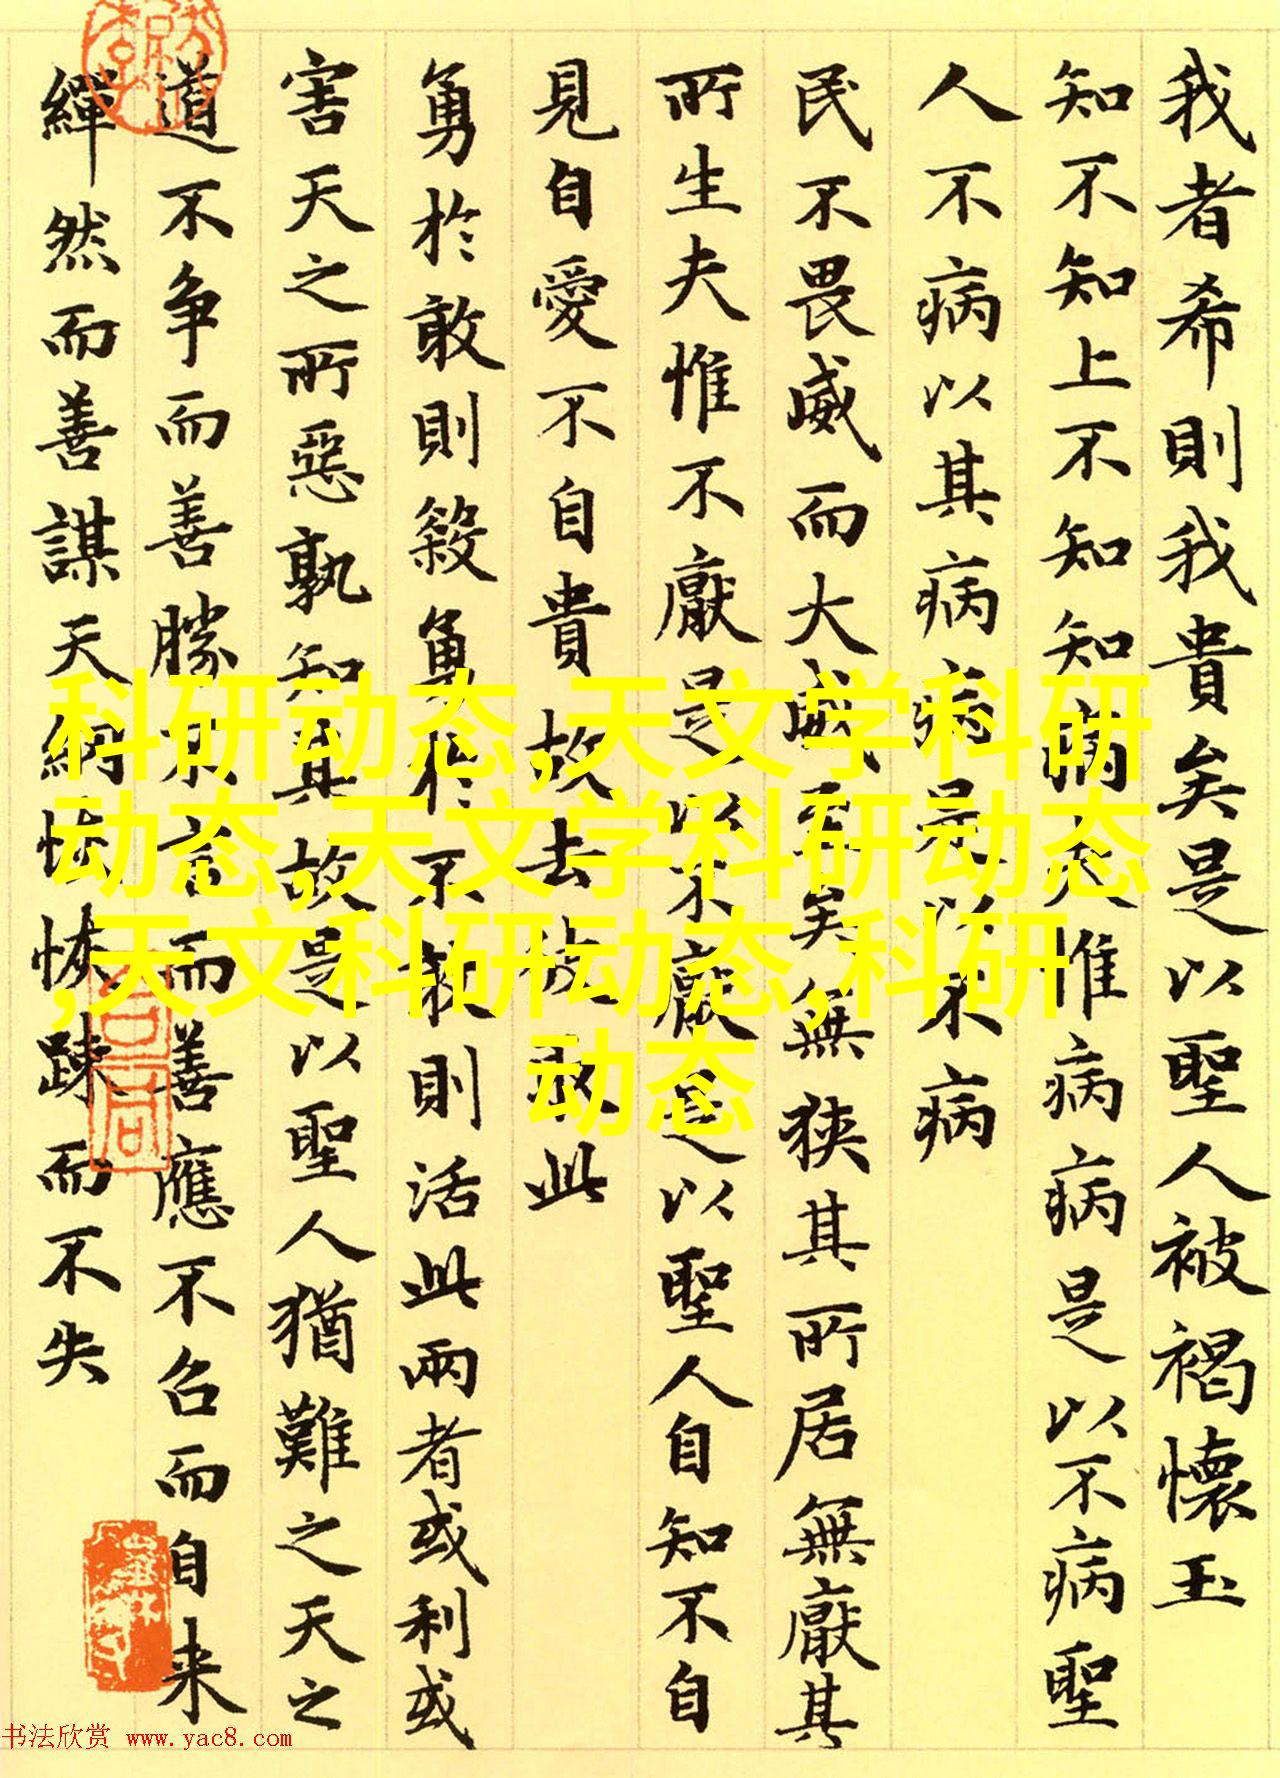 我者希則我貴矣是以聖人被褐懷玉
知不知上不知知病夫惟病病是以不病聖
人不病以其病病是以不病
民不畏威而大威至矣無狹其所居無厭其
所生夫惟不厭是以不厭是以聖人自知不自
見自愛不自貴故去彼取此
勇於敢則殺勇於不敢則活此兩者或利或
害天之所惡孰知其故是以聖人猶難之天之
道不争而善勝不言而善應不召而自来
繟然而善謀天網恢恢踈而不失
科研动态,天文学科研
动态,天文学科研动态
,天文科研动态,科研
动态
书法欣赏 www.yac8.com